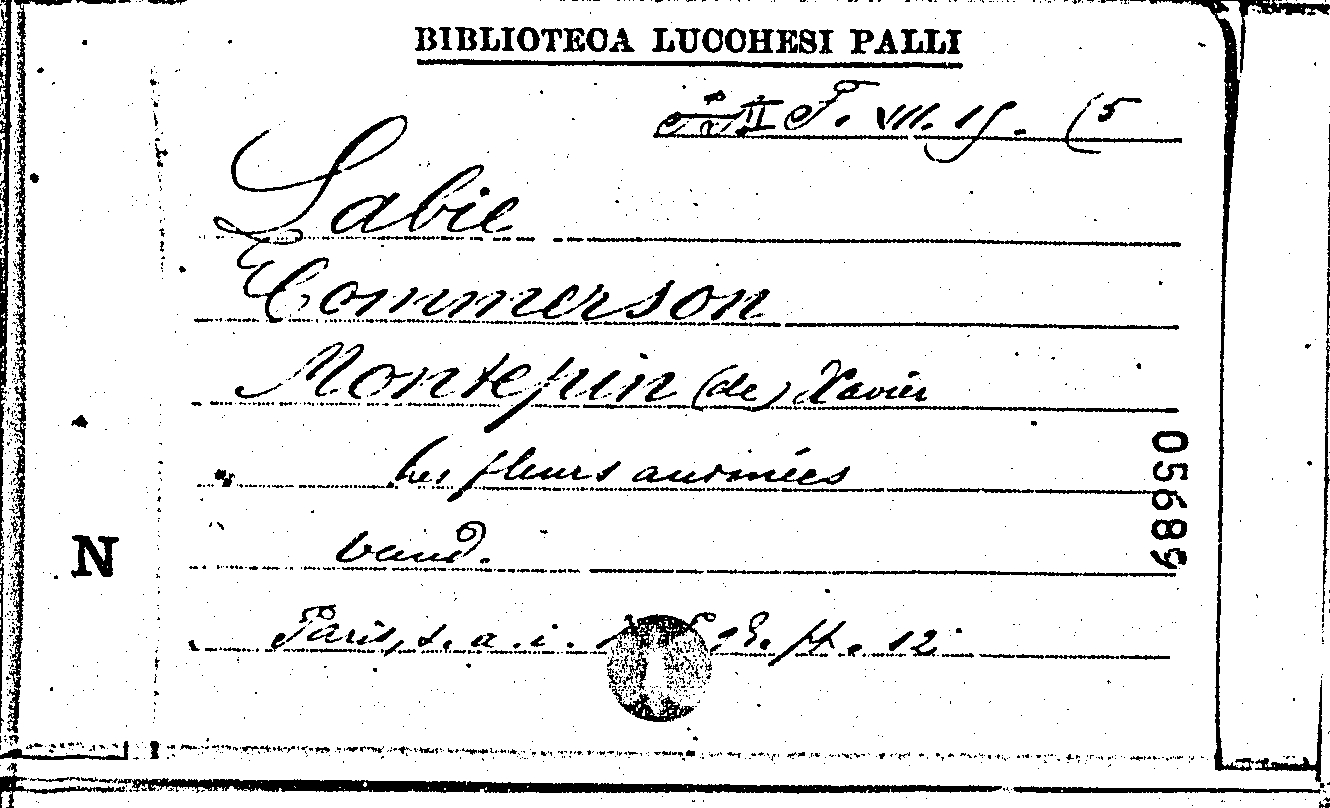 BIBLIOTECA LUCCHESI PALLI
F. VII. 15. (5
Labie
Commerson
Montepin (de) Xavier
Les fleurs animées
vaud.
Paris, s. a. i. 12
05689
N